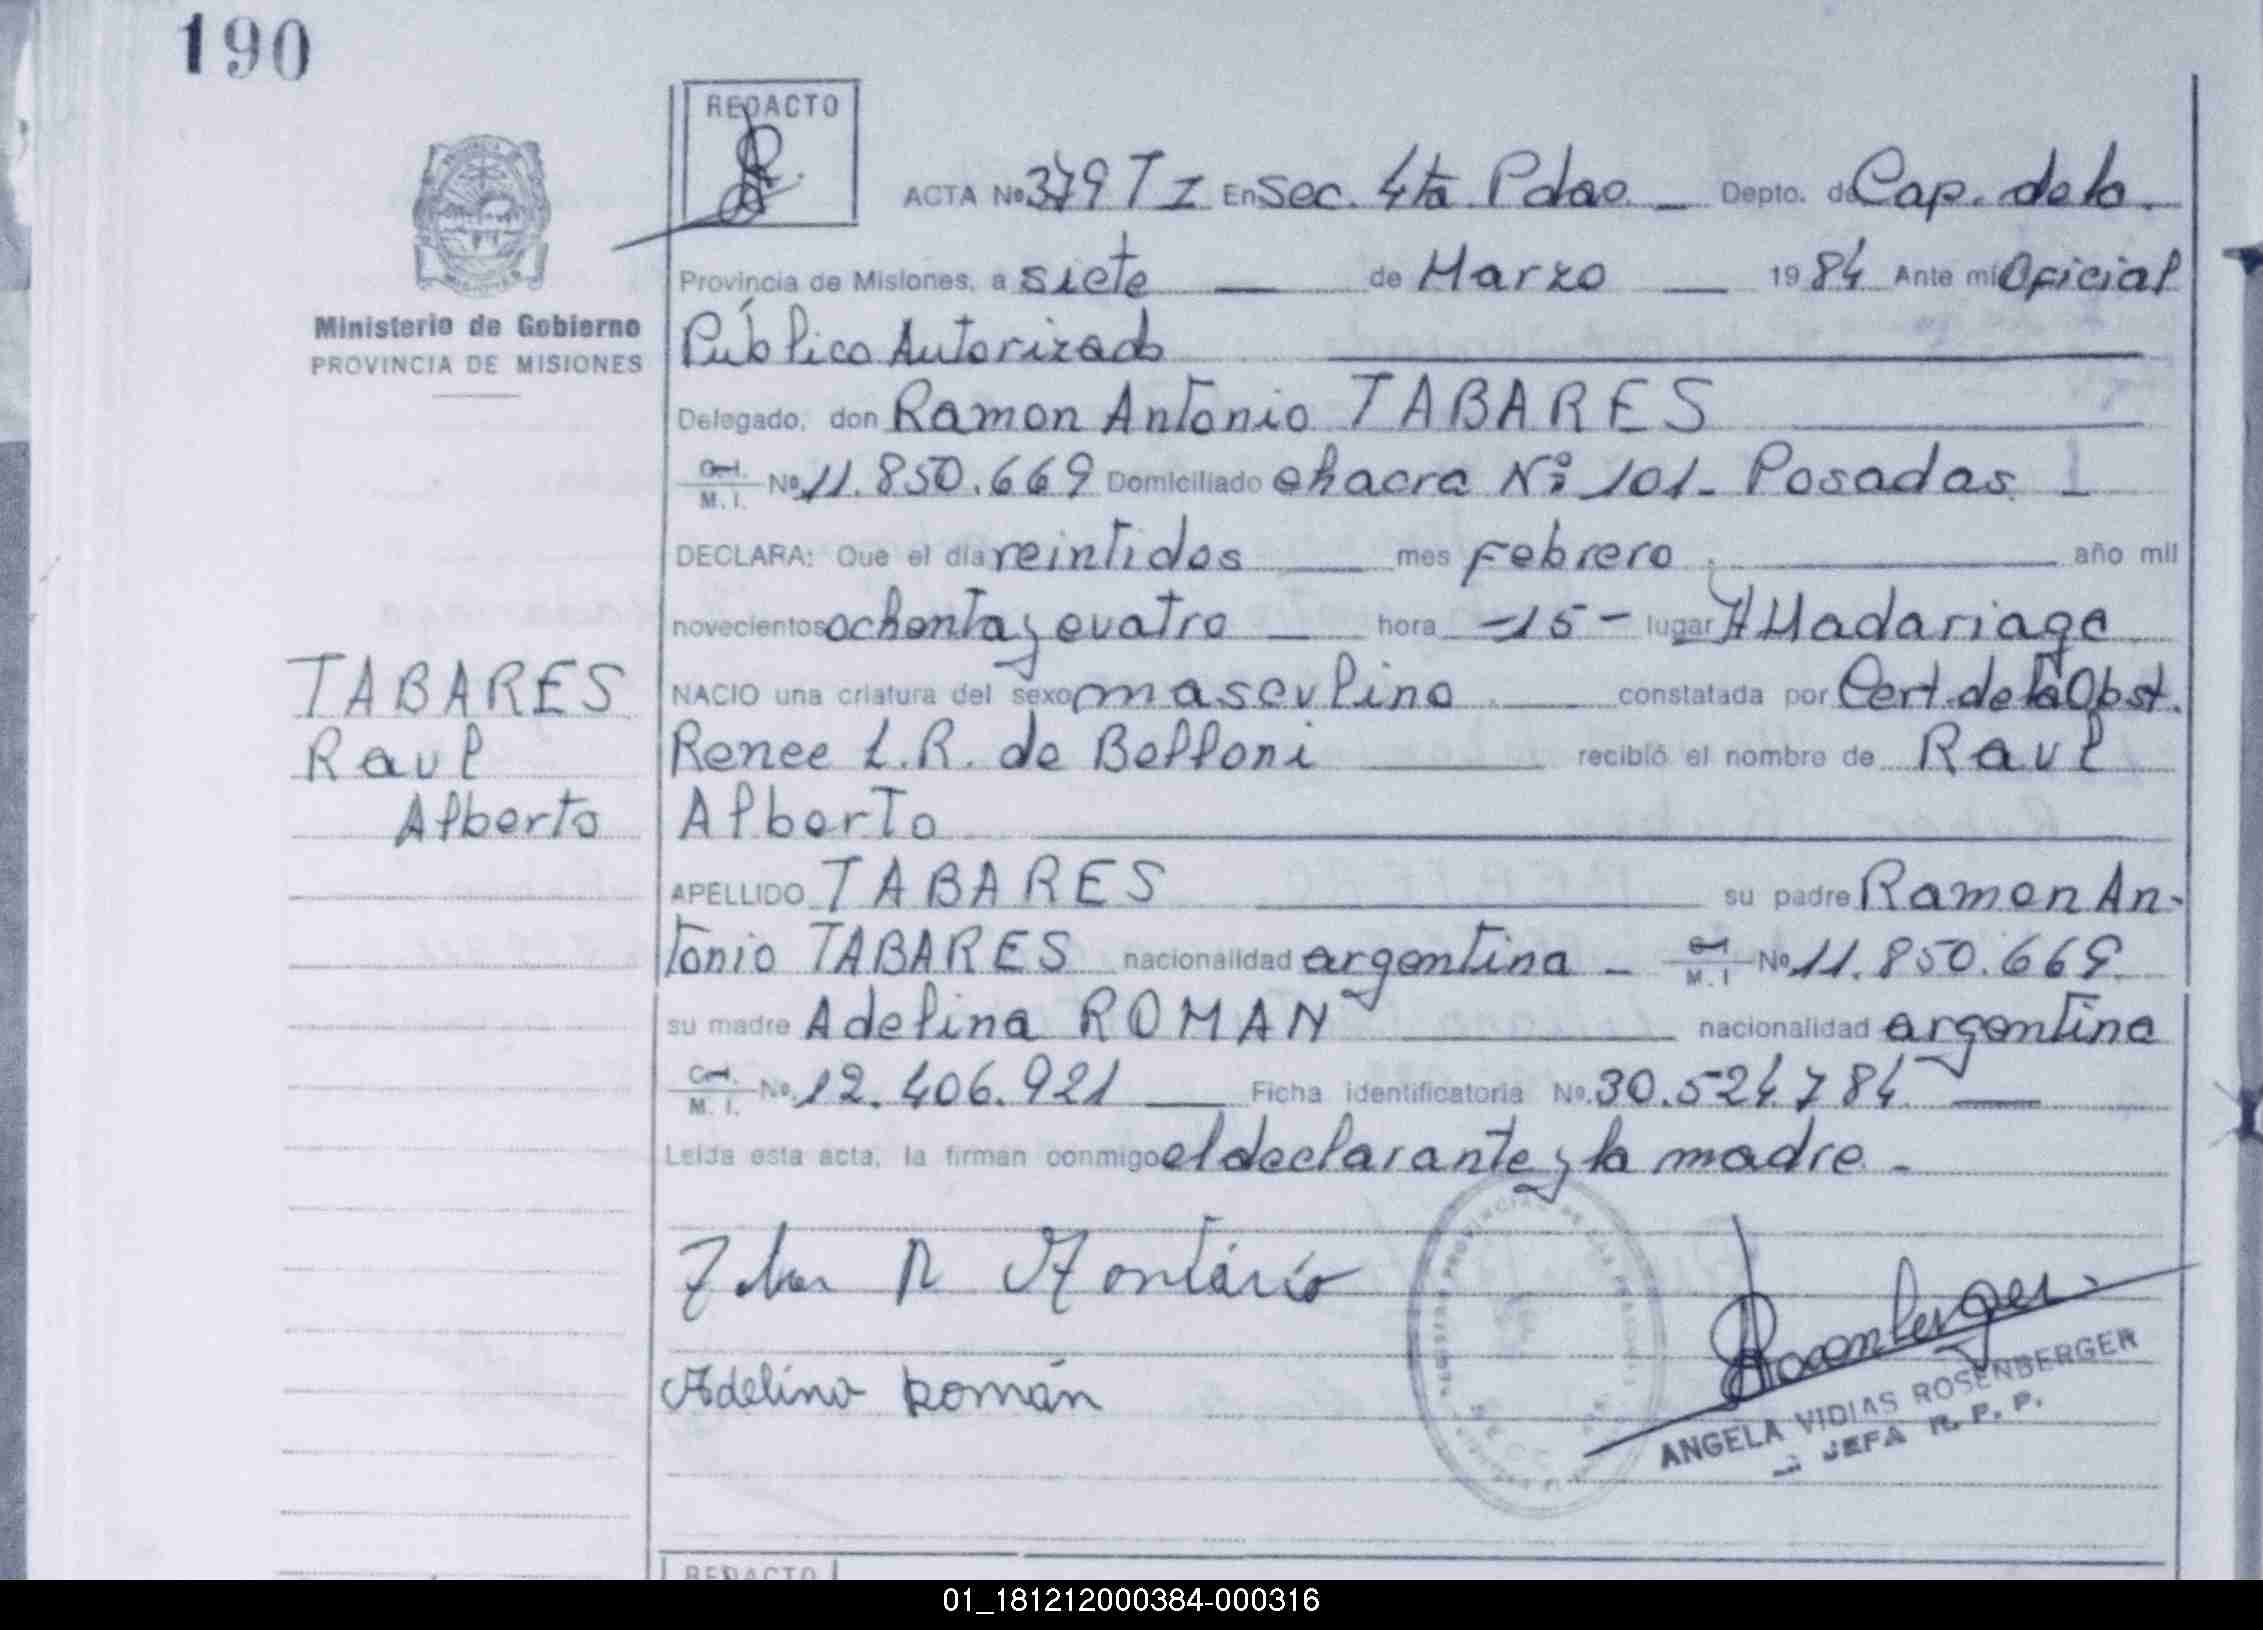 190
REDACTO
ACTA Nº 379 T I En Sec. 4ta Pdas. Depto. de Cap. de la
Provincia de Misiones, a siete de Marzo 1984 Ante mí Oficial
Ministerio de Gobierno
PROVINCIA DE MISIONES
Público Autorizado
Delegado, don Ramon Antonio TABARES
M. I. Nº 11.850.669 Domiciliado chacra Nº 101- Posadas
DECLARA: Que el día veintidos mes Febrero año mil
novecientos ochenta y cuatro hora -15- lugar H Madariaga
NACIO una criatura del sexo masculino constatada por Cert. de la Obst.
Renee L.R. de Belloni recibió el nombre de Raul
Alberto
TABARES
Raul
Alberto
APELLIDO TABARES su padre Ramon An-
tonio TABARES nacionalidad argentina M. I Nº 11.850.669
su madre Adelina ROMAN nacionalidad argentina
M. I. Nº 12.406.921 Ficha identificatoria Nº 30.524.784
Leída esta acta, la firman conmigo el declarante y la madre.
Adelina Román
Rosenberger
ANGELA VIDIAS ROSENBERGER
JEFA R. P. P.
REDACTO
01_181212000384-000316